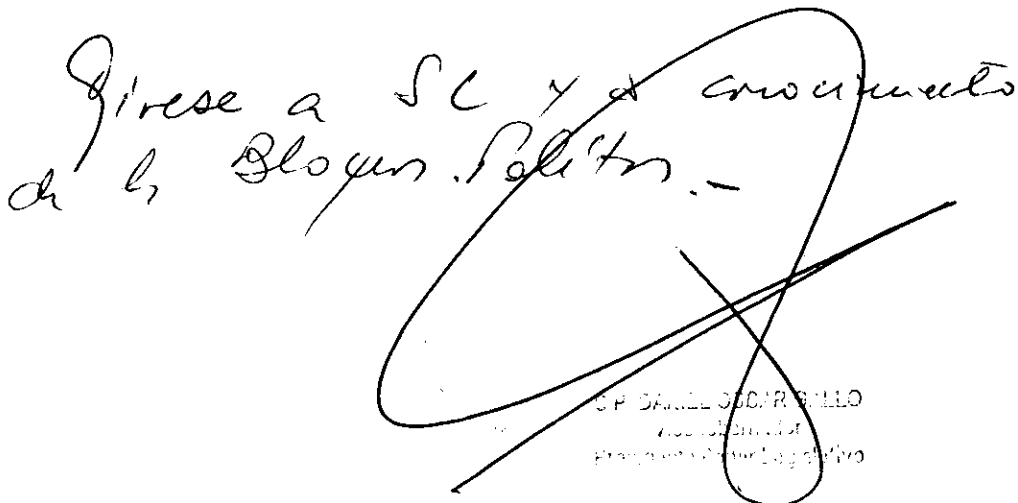 Gírese a SL y a conocimiento
de los Bloques Políticos.-
C.P. DANIEL OSCAR GALLO
Vicegobernador
Presidente Poder Legislativo